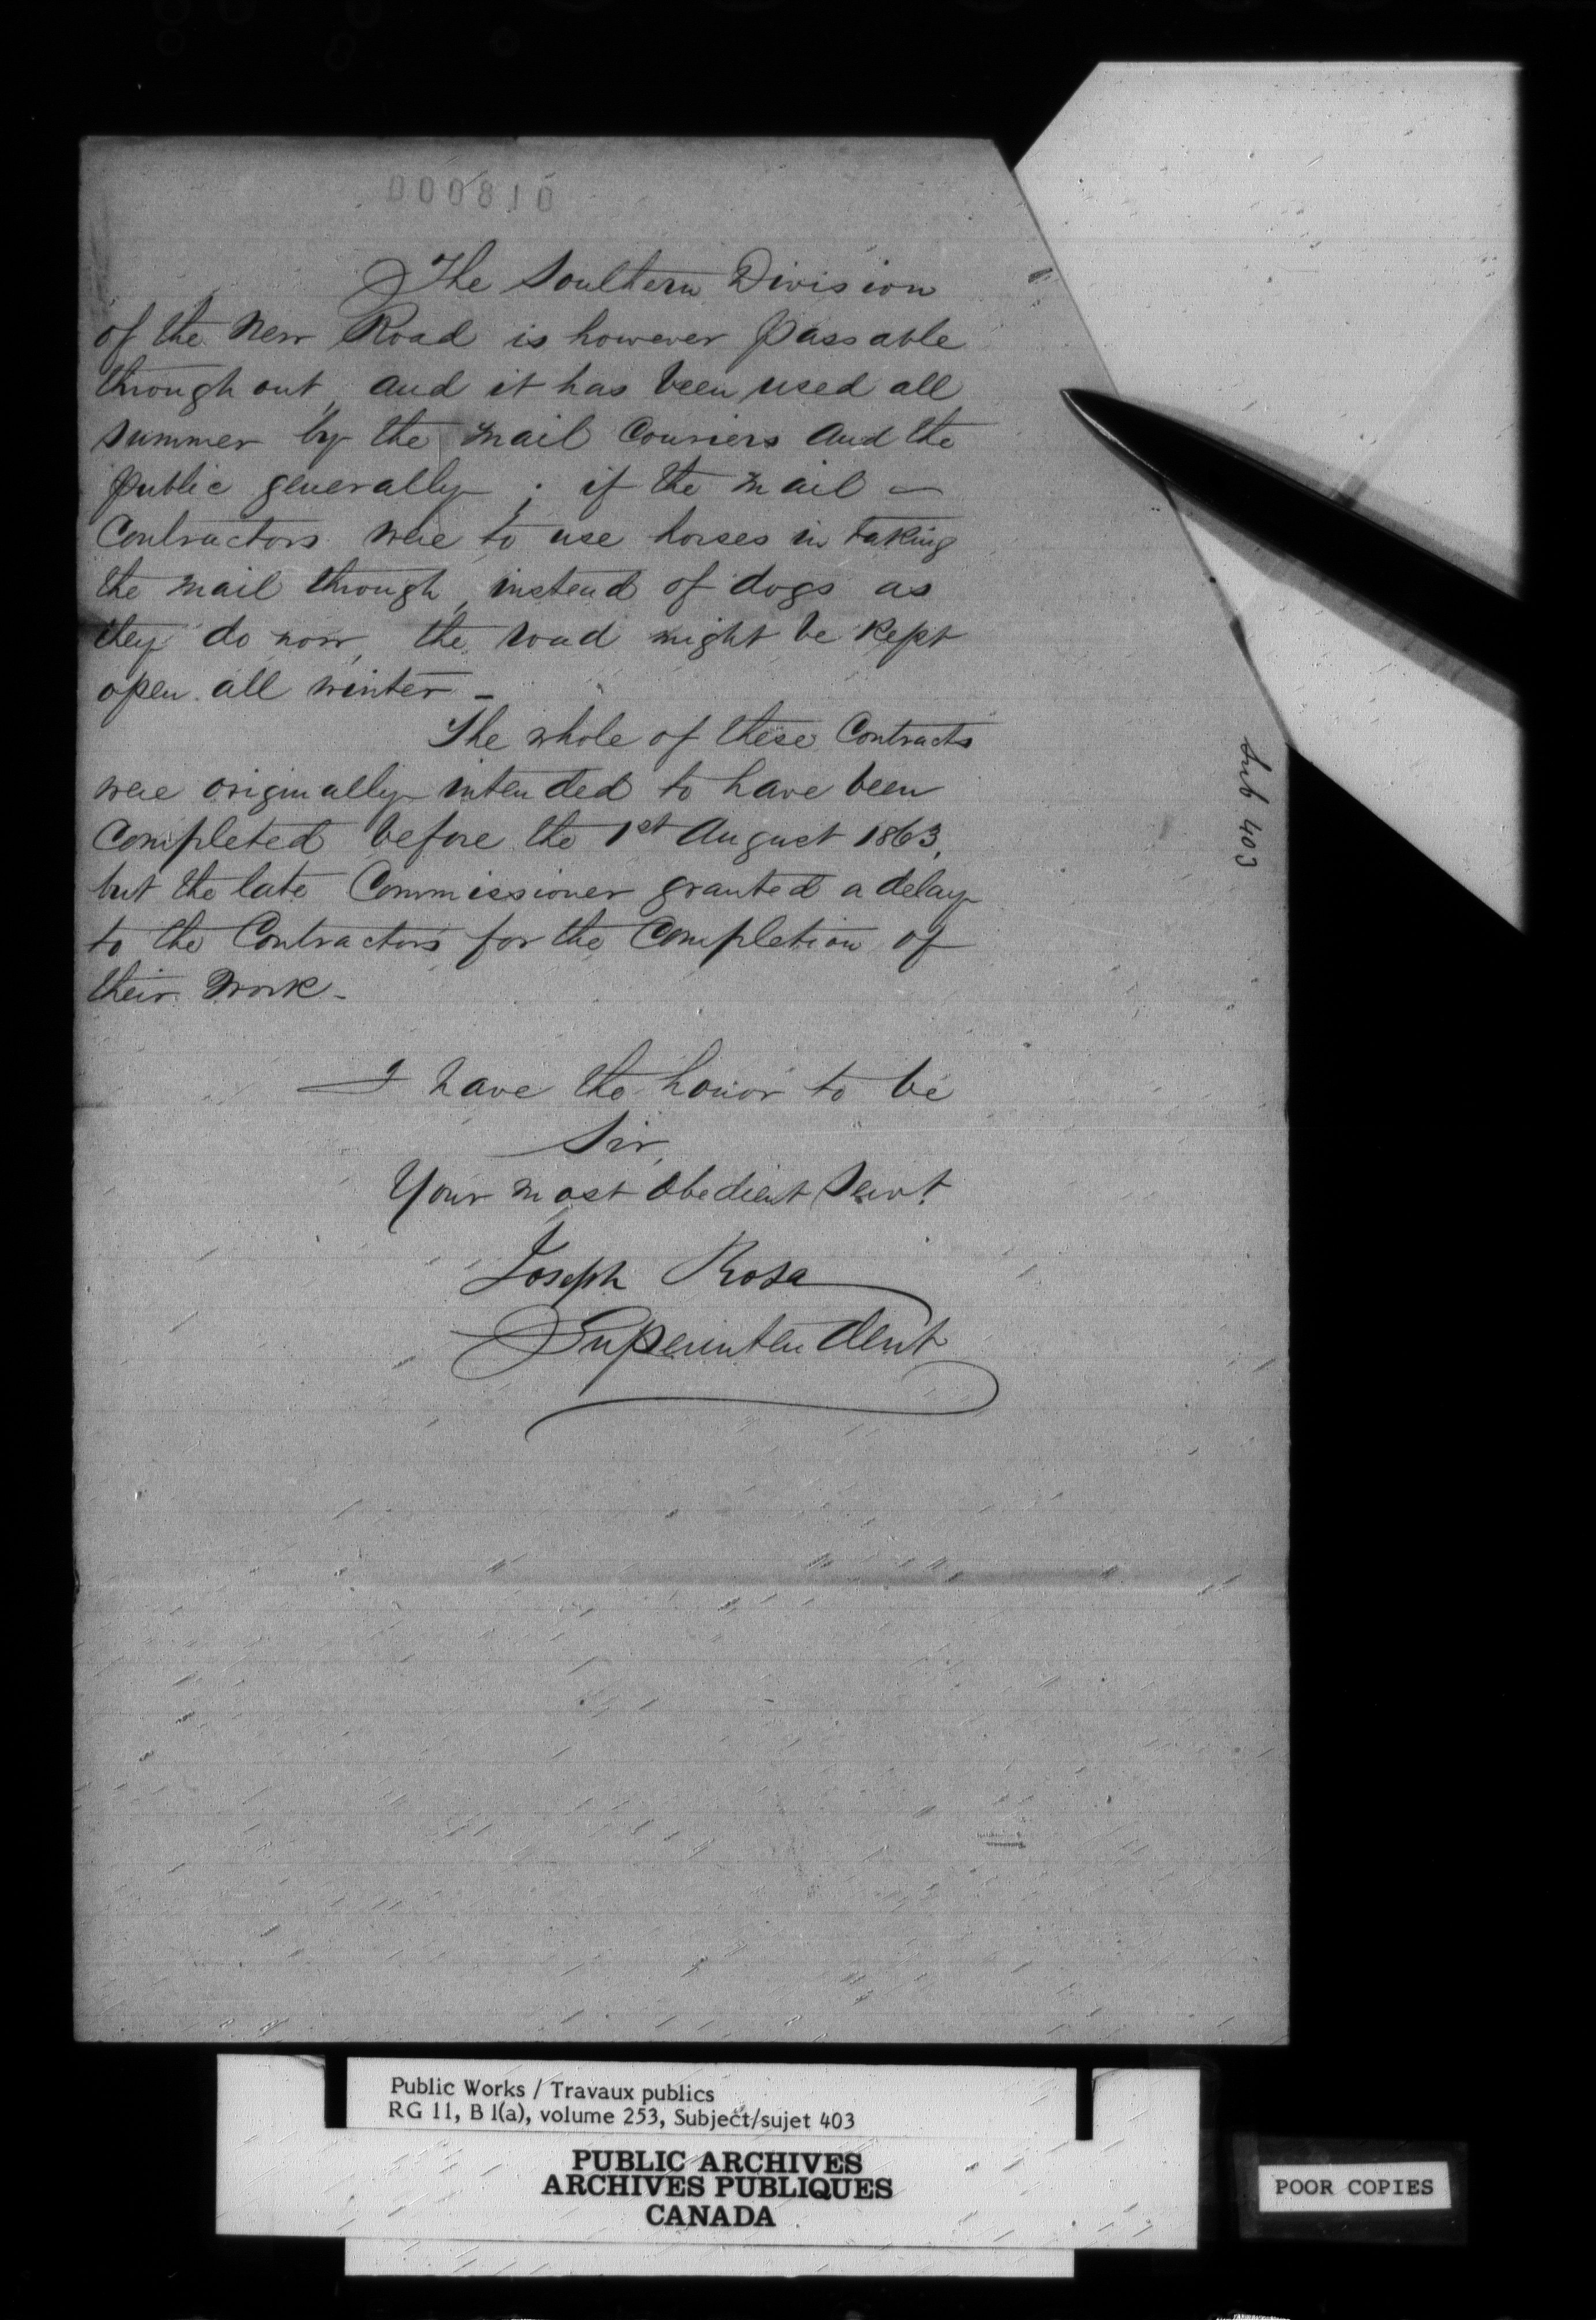 000810
The Soulthern Division
of the New Road is however passable
through out, and it has been used all
summer by the mail Couriers and the
public generally ; if the mail -
Contractors were to use horses in taking
the mail through, instead of dogs as
they do now, the road might be kept
open all winter -
The whole of these Contracts
were originally intended to have been
Completed before the 1st August 1863,
but the late Commissioner granted a delay
to the Contractors for the Completion of
their work -
I have the honor to be
Sir,
Your most obedient Servt.
Joseph Rosa
Superintendent
Sub 403
Public Works / Travaux publics
RG 11, B 1(a), volume 253, Subject/sujet 403
PUBLIC ARCHIVES
ARCHIVES PUBLIQUES
CANADA
POOR COPIES